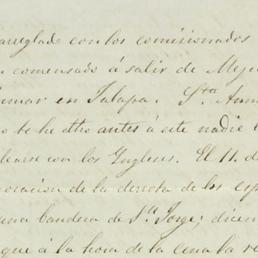 arreglado con los comisionados
comensado á salir de Meji
mar en Jalapa. Sta Anna
te he dho antes á este nadie l
con los Yngleses. El 11. de
de la derrota de los esp
una bandera de Sn Jorge; dicen
que á la hora de la cena la re